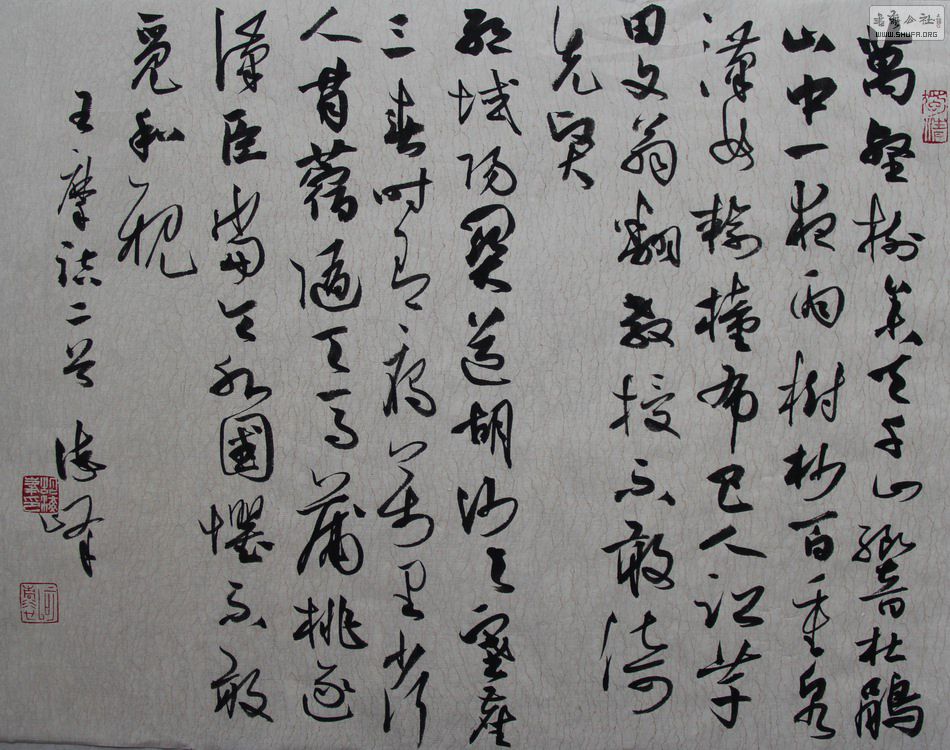 萬壑樹參天千山響杜鵑
山中一夜雨樹杪百重泉
漢女輸橦布巴人訟芋
田文翁翻教授不敢倚
先賢
絕域陽關道胡沙與塞塵
三春時有雁萬里少行
人苜蓿隨天馬蒲桃逐
漢臣當令外國懼不敢
覓和親
王摩詰二首 峰
書法公社
WWW.SHUFA.ORG